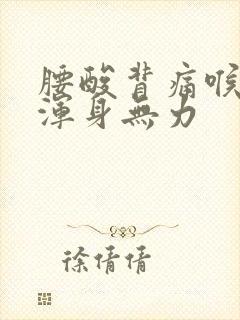 腰酸背痛喉
渾身無力
徐倩倩